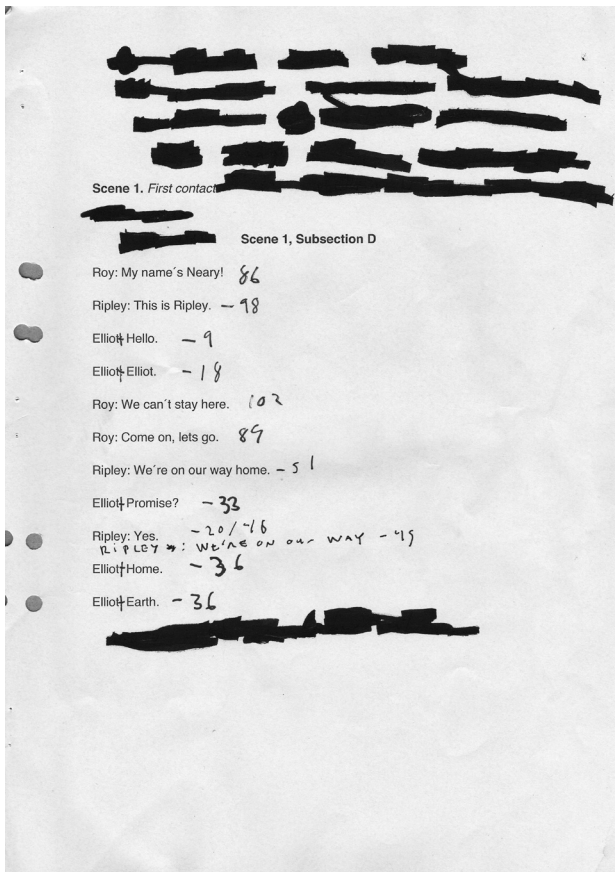 Scene 1. First contact
Scene 1, Subsection D
Roy: My name´s Neary! 86
Ripley: This is Ripley. - 98
Elliot Hello. - 9
Elliot Elliot. - 18
Roy: We can´t stay here. 102
Roy: Come on, lets go. 89
Ripley: We´re on our way home. - 51
Elliot Promise? - 33
Ripley: Yes. - 20/-16
RiPLEY : WE'RE ON OUR WAY - 49
Elliot Home. - 36
Elliot Earth. - 36